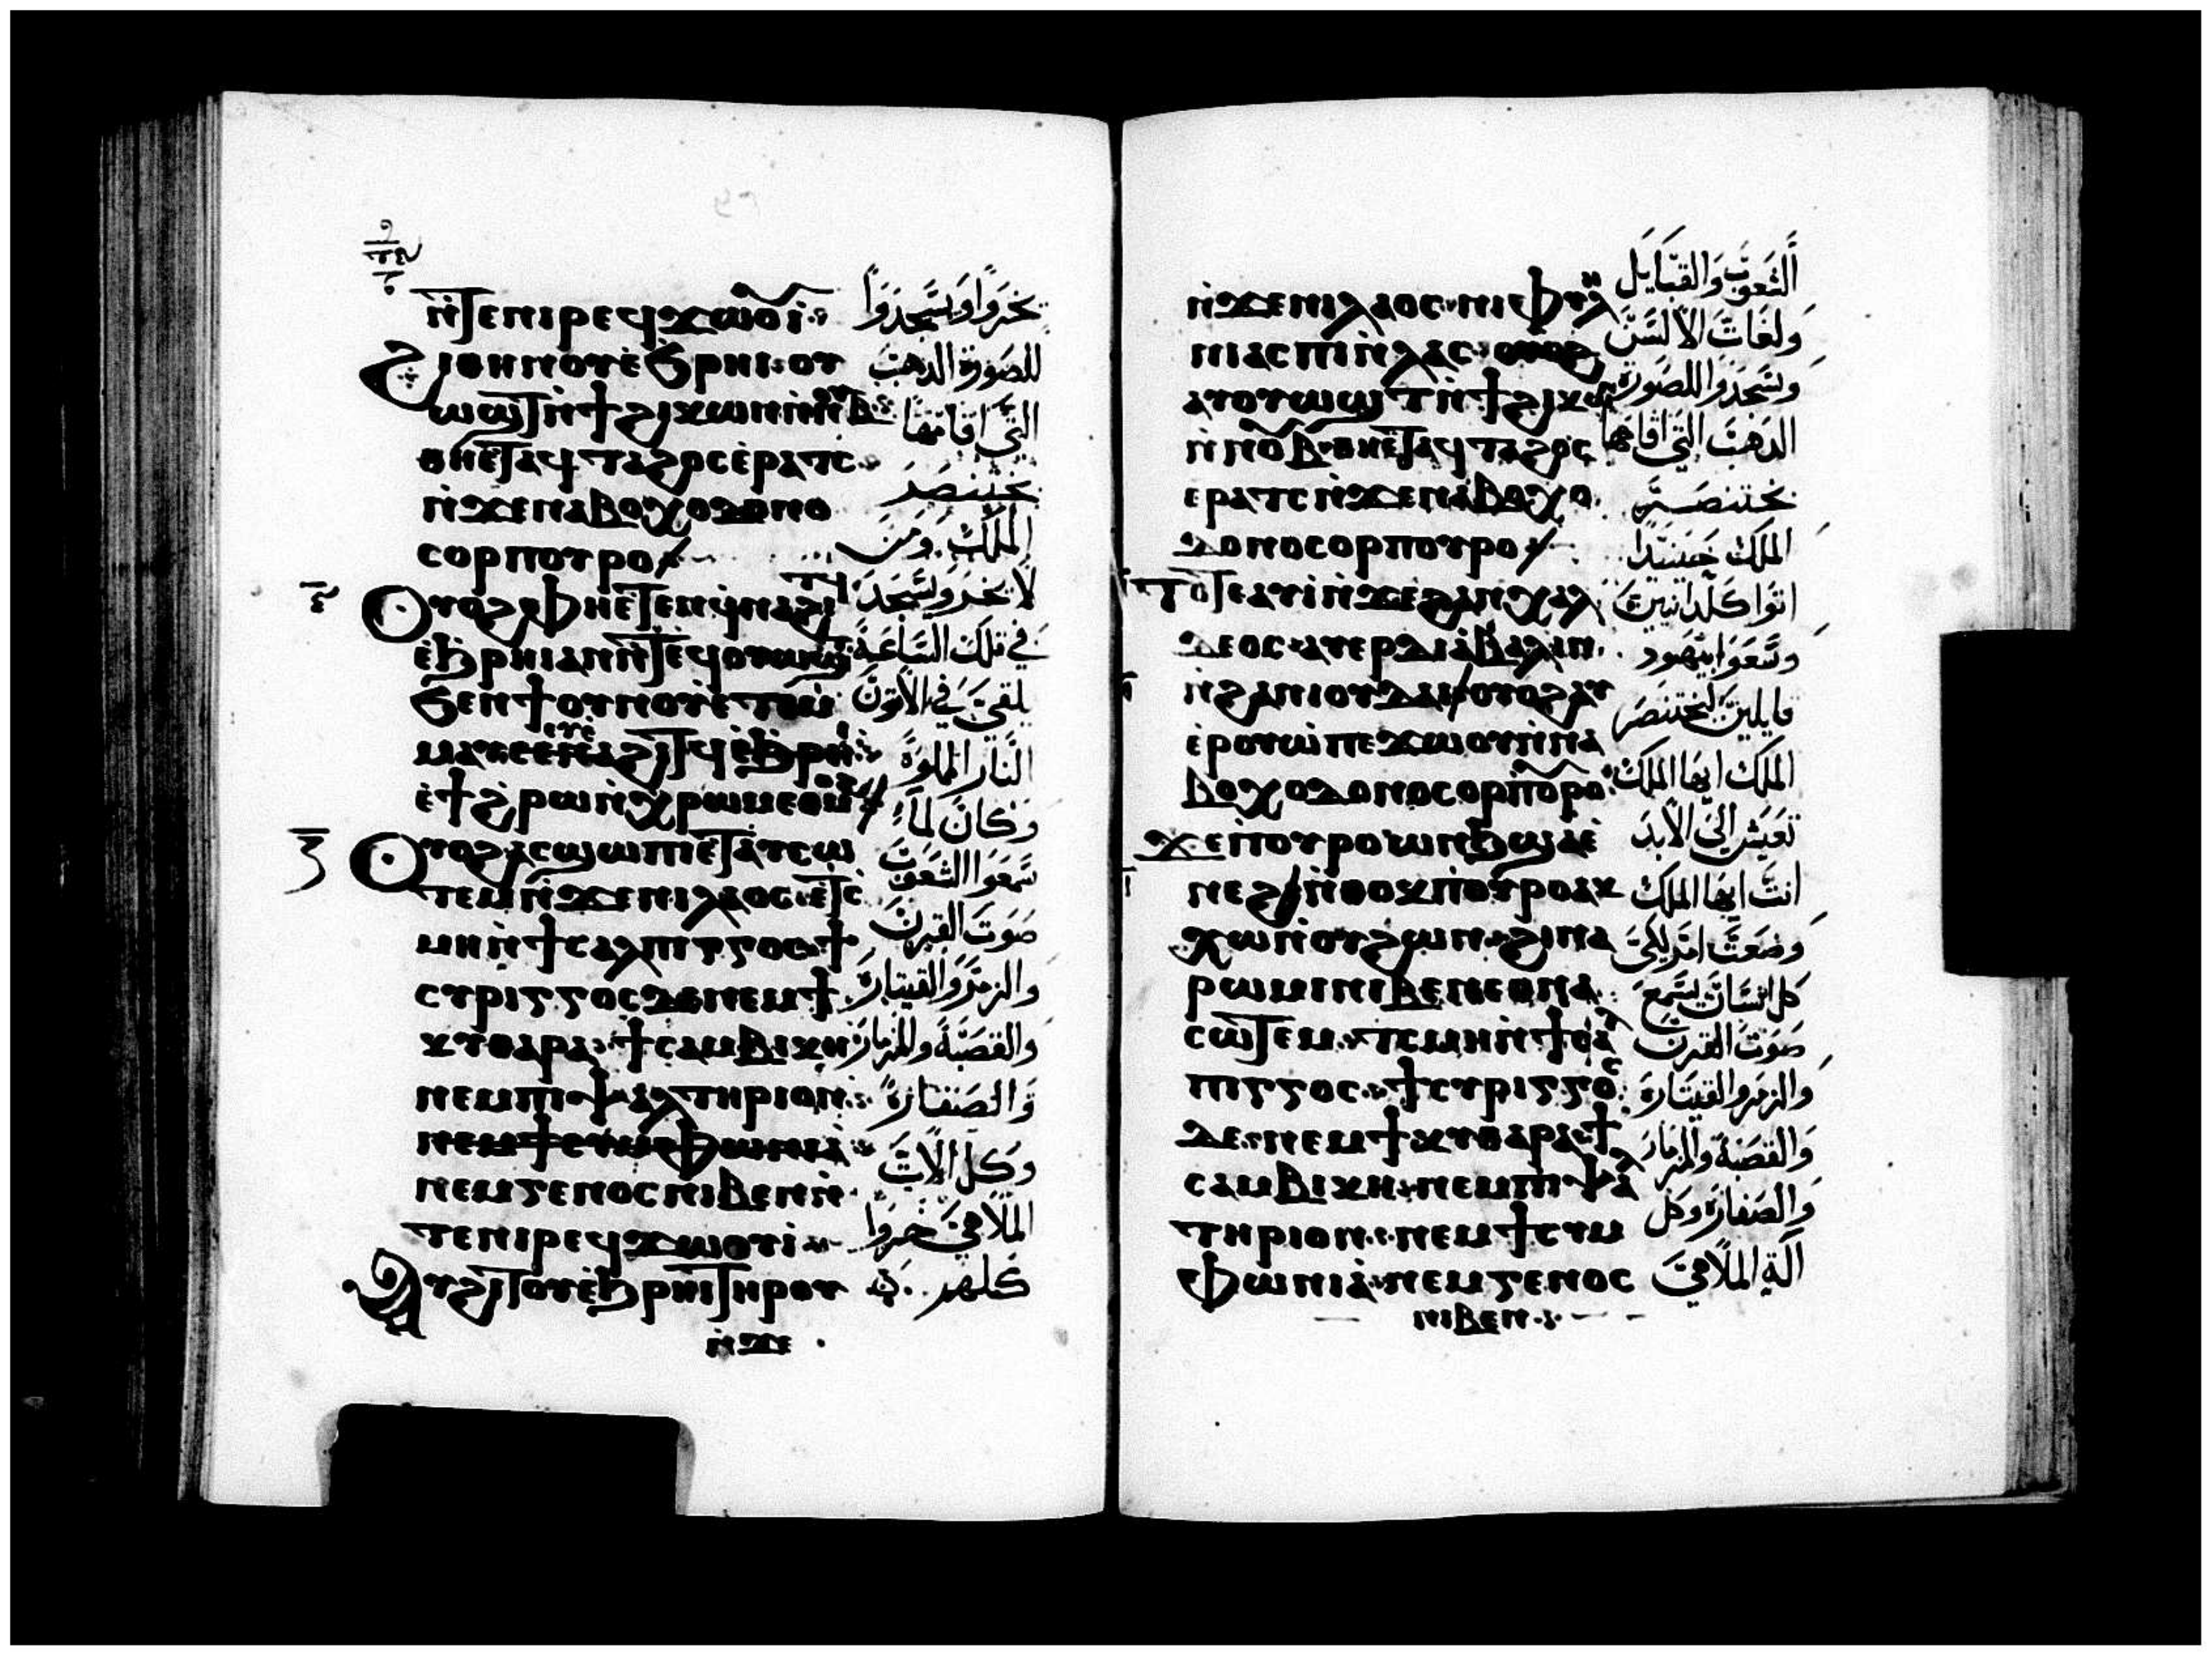 ⲛ̀ⲧⲉⲛⲓⲣⲉϥϫⲱⲟⲓ̀
ϩⲓⲑⲏⲛⲟⲩⲉ̀ϧⲣⲏⲓ ⲟⲩ
ⲱϣⲧⲛ̀ϯϩⲓⲕⲱⲛⲛ̀ⲛⲟⲩⲃ
ⲑⲏⲉⲧⲁϥⲧⲁϩⲟⲥⲉ̀ⲣⲁⲧⲥ
ⲛ̀ϫⲉⲛⲁⲃⲟⲭⲟⲇⲟⲛⲟ
ⲥⲟⲣⲡⲟⲩⲣⲟ
ⲟⲩⲟϩⲫⲏⲉⲧⲉⲛϥⲛⲁϩⲓⲧϥ
ⲉ̀ϧⲣⲏⲓⲁⲛⲛ̀ⲧⲉϥⲟⲩⲱϣⲧ
ϧⲉⲛϯⲟⲩⲛⲟⲩⲉ̀ⲧⲉⲙ̀
ⲙⲁⲩⲉⲩⲉ̀ϩⲓⲧϥⲉ̀ϧⲣⲏⲓ
ⲉ̀ϯϩⲣⲱⲛ̀ⲭⲣⲱⲙⲉⲑⲙⲟϩ
ⲟⲩⲟϩⲁⲥϣⲱⲡⲓⲉⲧⲁⲩⲥⲱ
ⲧⲉⲙⲛ̀ϫⲉⲛⲓⲗⲁⲟⲥ ⲉⲧⲥ
ⲙⲏⲛ̀ϯⲥⲁⲗⲡⲓⲅⲅⲟⲥ ϯ
ⲥⲩⲣⲓⲅⲅⲟⲥⲇⲉⲛⲉⲙϯ
ⲕⲩⲑⲁⲣⲁ ϯⲥⲁⲙⲃⲓⲕⲏ
ⲛⲉⲙⲡⲓⲯⲁⲗⲧⲏⲣⲓⲟⲛ
ⲛⲉⲙϯⲥⲩⲙⲫⲱⲛⲓⲁ
ⲛⲉⲙⲅⲉⲛⲟⲥⲛⲓⲃⲉⲛⲛ̀
ⲧⲉⲛⲓⲣⲉϥϫⲱⲟⲩⲓ̀
ⲁⲩϩⲓⲧⲟⲩⲉ̀ϧⲣⲏⲓⲧⲏⲣⲟⲩ
ⲛ̀ϫⲉ
يخروا ويسجدوا
للصورة الذهب
التي اقامها
بختنصر
الملك ومن
لا يخر ويسجد
في تلك الساعة
يلقي في الاتون
النار المملوة
وكان لما
سمعوا الشعوب
صوت القرن
والزمر والقيتارة
والقصبة والمزمار
والصنفارة
وكل الات
الملاهي خروا
كلهم
ⲛ̀ϫⲉⲛⲓⲗⲁⲟⲥ ⲛⲓⲫⲩⲗⲏ
ⲛⲓⲁⲥⲡⲓⲛ̀ⲗⲁⲥ ⲟⲩⲟϩ
ⲁⲩⲟⲩⲱϣⲧⲛ̀ϯϩⲓⲕⲱⲛ
ⲛ̀ⲛⲟⲩⲃ ⲑⲏⲉⲧⲁϥⲧⲁϩⲟⲥ
ⲉⲣⲁⲧⲥⲛ̀ϫⲉⲛⲁⲃⲟⲭⲟ
ⲇⲟⲛⲟⲥⲟⲣⲡⲟⲩⲣⲟ
ⲧⲟⲧⲉⲁⲩⲓ̀ⲛ̀ϫⲉϩⲁⲛⲭⲁⲗ
ⲇⲉⲟⲥ ⲁⲩⲉⲣⲇⲓⲁ̀ⲃⲁⲗⲓⲛ
ⲛ̀ϩⲁⲛⲓⲟⲩⲇⲁⲓ ⲟⲩⲟϩⲁⲩ
ⲉ̀ⲣⲟⲩⲱ̀ⲡⲉϫⲱⲟⲩⲛ̀ⲛⲁ
ⲃⲟⲭⲟⲇⲟⲛⲟⲥⲟⲣⲡⲟⲩⲣⲟ
ϫⲉⲡⲟⲩⲣⲟⲱⲛϧϣⲁⲉ̀
ⲛⲉϩ ⲛ̀ⲑⲟⲕⲡⲟⲩⲣⲟⲁⲕ
ⲭⲱⲛ̀ⲟⲩϩⲱⲛ ϩⲓⲛⲁ
ⲣⲱⲙⲓⲛⲓⲃⲉⲛⲉⲑⲛⲁ
ⲥⲱⲧⲉⲙ ⲧⲥⲙⲏⲛ̀ϯⲥⲁⲗ
ⲡⲓⲅⲅⲟⲥ ϯⲥⲩⲣⲓⲅⲅⲟⲥ
ⲇⲉ ⲛⲉⲙϯⲕⲩⲑⲁⲣⲁ ϯ
ⲥⲁⲙⲃⲓⲕⲏ ⲛⲉⲙⲡⲓⲯⲁⲗ
ⲧⲏⲣⲓⲟⲛ ⲛⲉⲙϯⲥⲩⲙ
ⲫⲱⲛⲓⲁ̀ ⲛⲉⲙⲅⲉⲛⲟⲥ
ⲛⲓⲃⲉⲛ
الشعوب والقبايل
ولغات الالسن
وسجدوا للصورة
الذهب التي اقامها
بختنصر
الملك حينيذ
اتوا كلدانيين
وسعوا بيهود
قايلين لبختنصر
الملك ايها الملك
تعيش الي الابد
انت ايها الملك
وضعت امر لكي
كل انسان يسمع
صوت القرن
والزمر والقيتارة
والقصبة والمزمار
والصنفارة وكل
آلة الملاهي